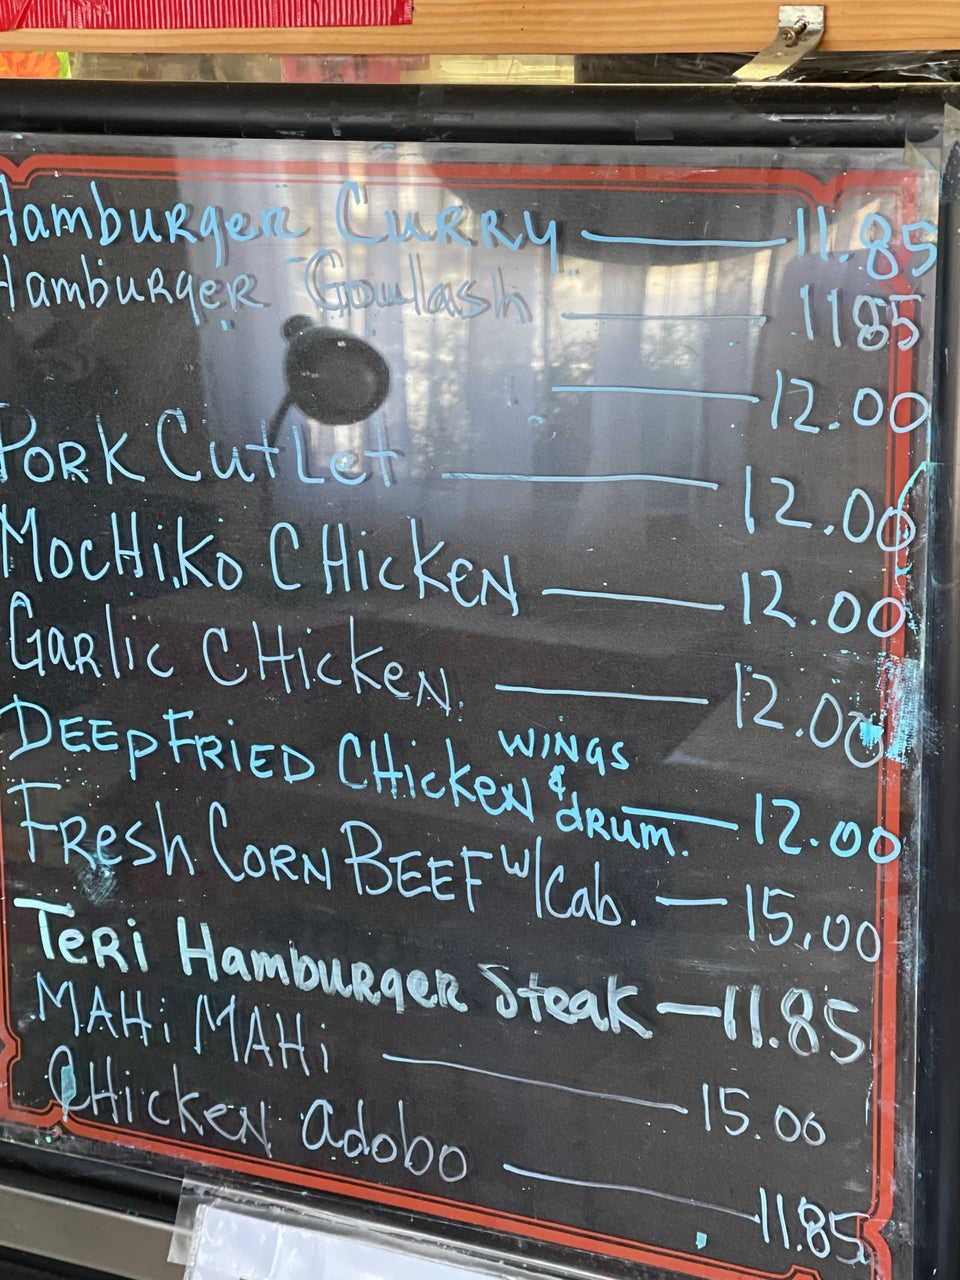 Hamburger Curry — 11.85
Hamburger Goulash — 1185
— 12.00
Pork Cutlet — 12.00
MocHiko CHicken — 12.00
Garlic CHicken — 12.00
Deep Fried CHicken wings & drum. — 12.00
Fresh Corn Beef w/Cab. — 15.00
Teri Hamburger Steak — 11.85
MAHi MAHi — 15.00
CHicken adobo — 11.85